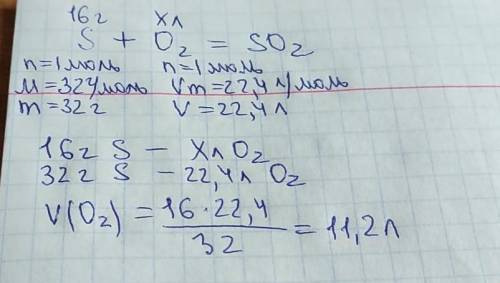 16г хл
S + O₂ = SO₂
n=1моль n=1моль
M=32г/моль Vm=22,4 л/моль
m=32г V=22,4л
16г S – Хл O₂
32г S – 22,4л O₂
V(O₂) = 16·22,4 / 32 = 11,2л